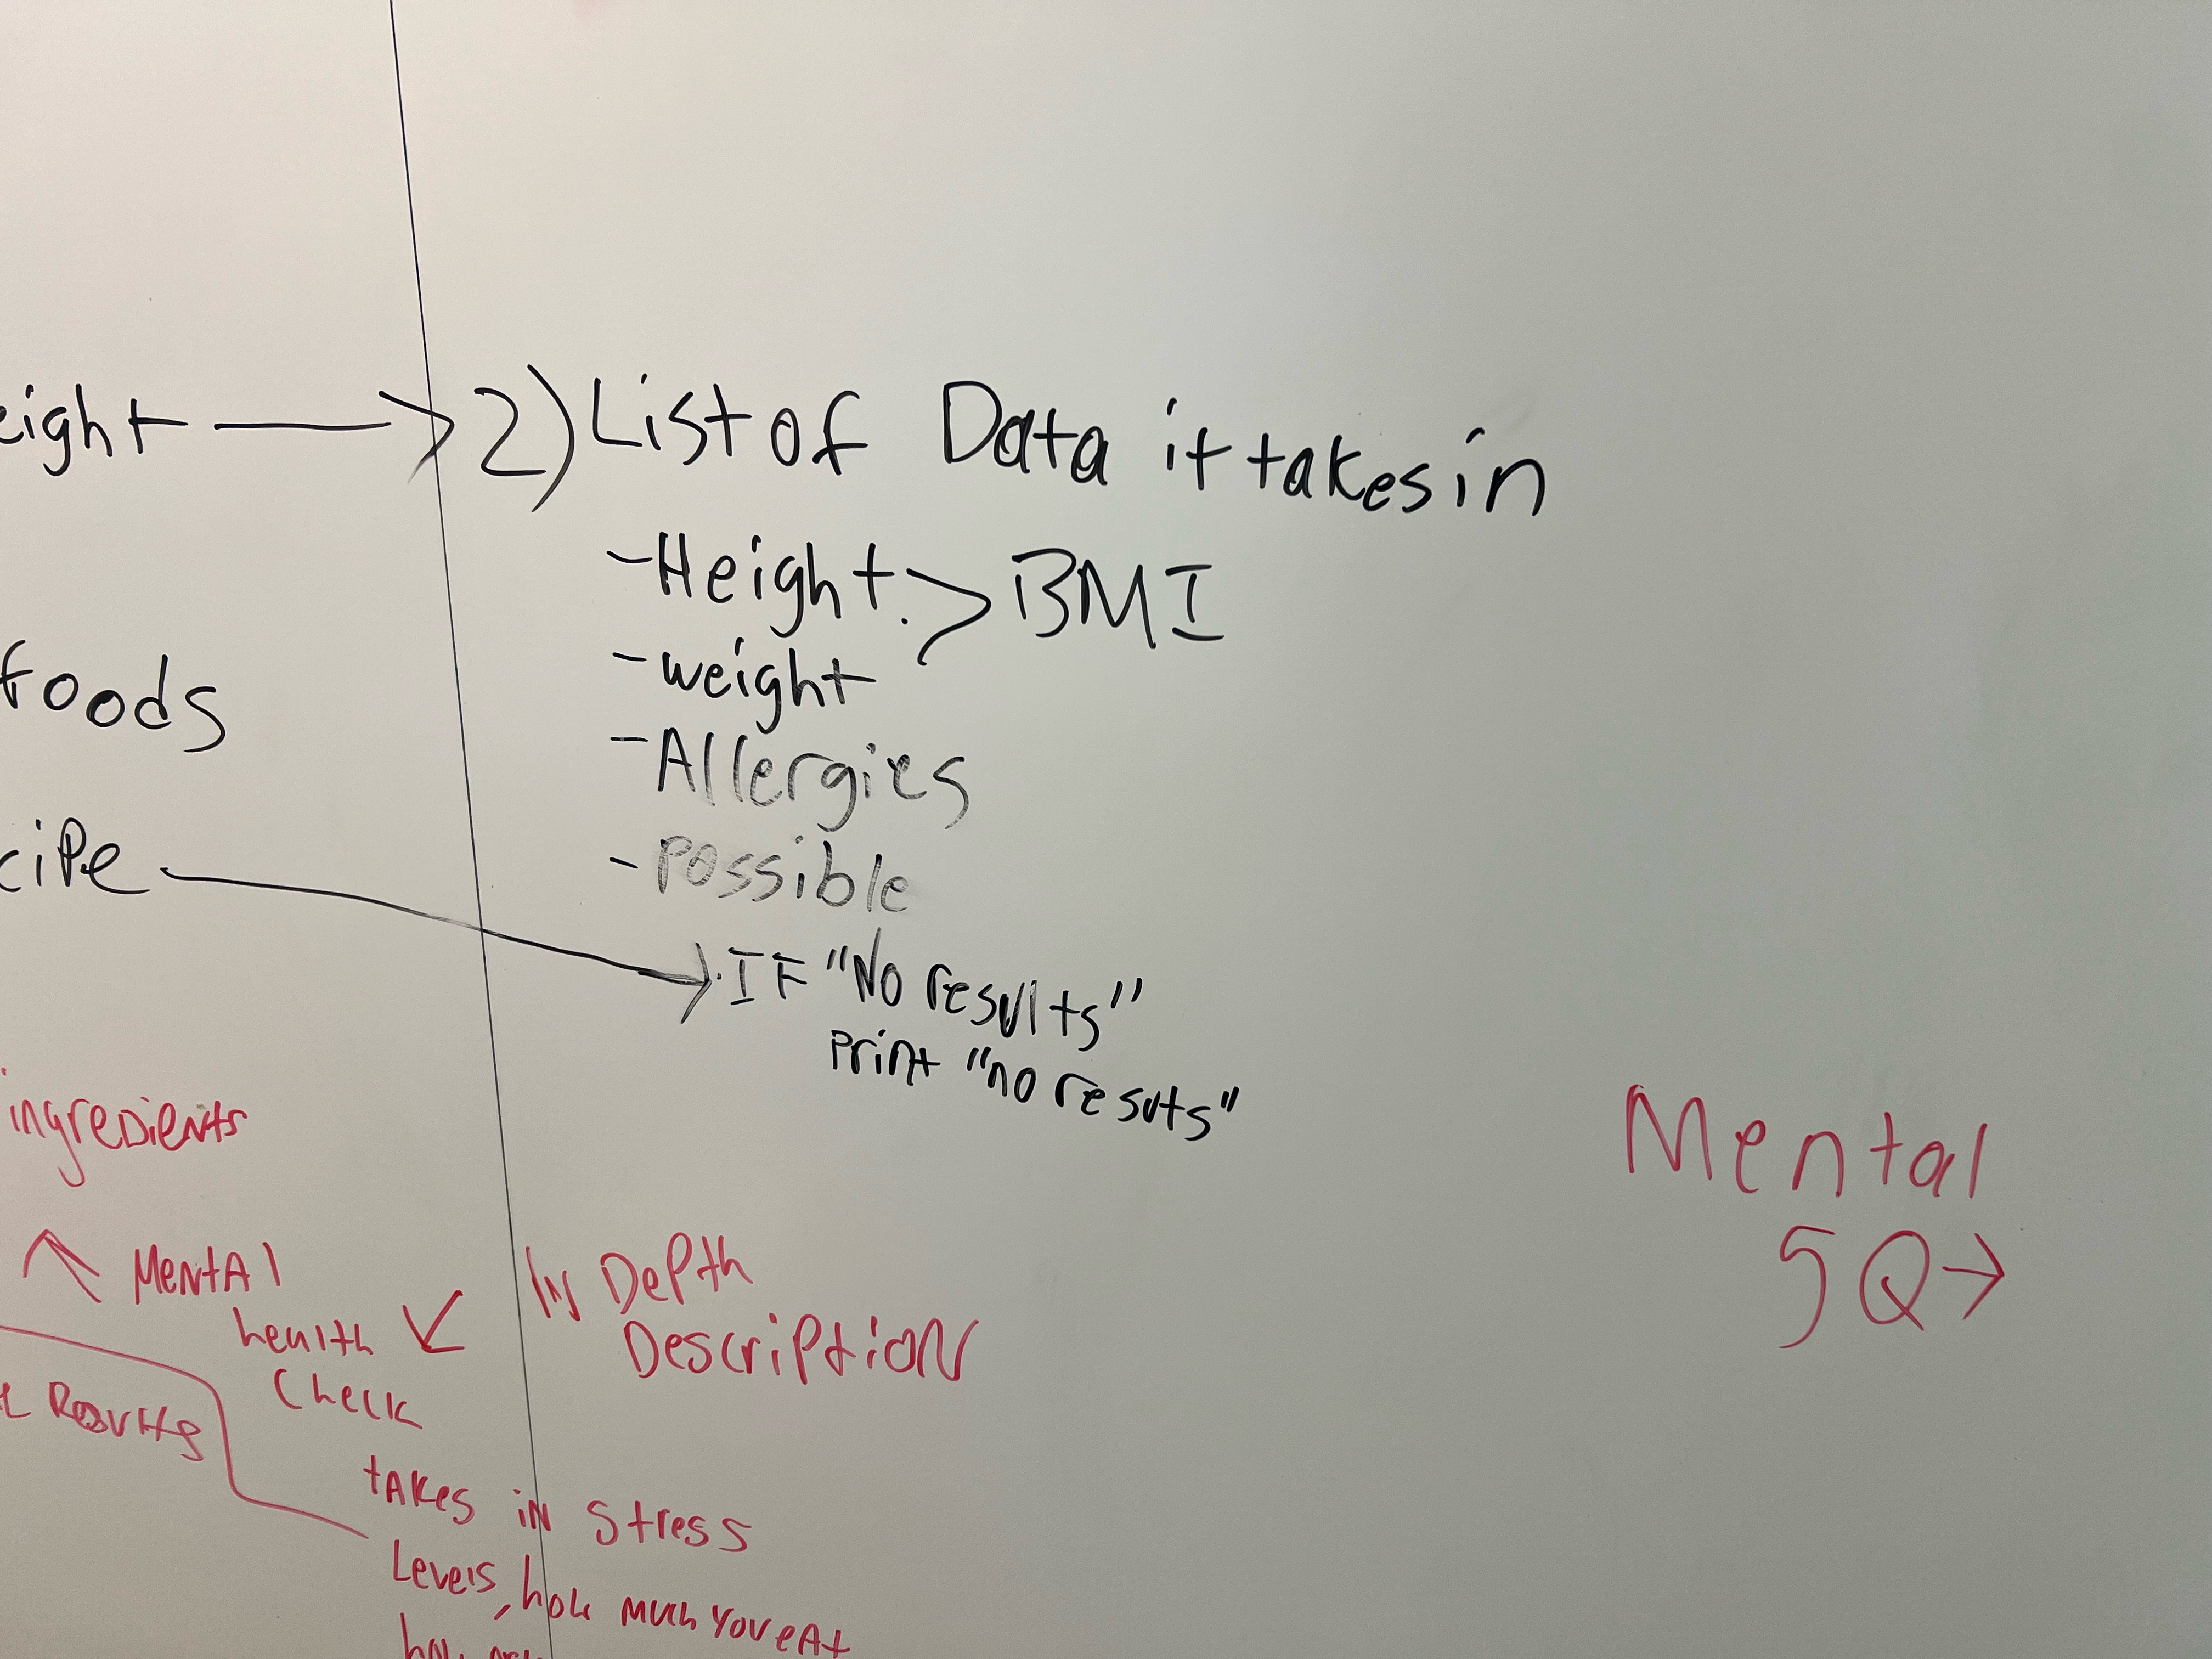 2) List of Data it takes in
- Height > BMI
- weight
- Allergies
- possible
foods
IF "No results"
Print "no resuts"
ingredients
Mental
5Q→
MentAl
health
Check
In Depth
Description
Results
tAkes in Stress
Levels, how much you eAt